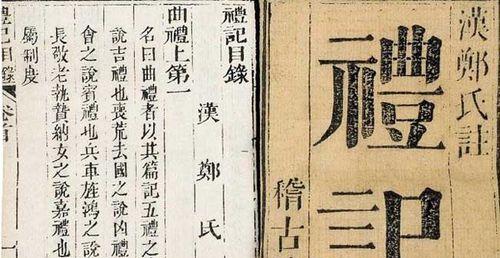 漢鄭氏註
禮記
稽古
禮記目錄
漢 鄭 氏
曲禮上第一
名曰曲禮者以其篇記五禮之
說吉禮也喪荒去國之說凶禮
會之說賓禮也兵車旌鴻之說
長敬老執贄納女之說嘉禮也
屬制度
禮記目錄 卷首 一